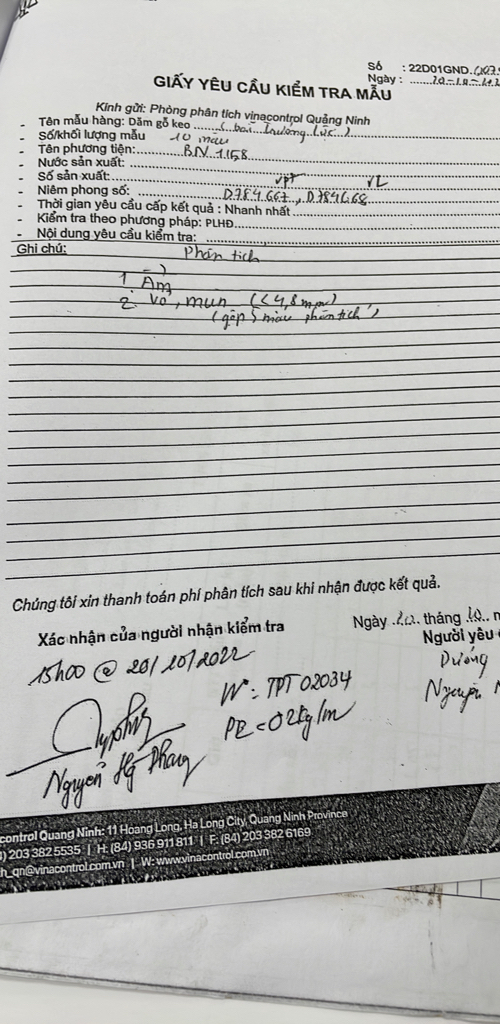 Số : 22D01GND.
Ngày : 20-10-
GIẤY YÊU CẦU KIỂM TRA MẪU
Kính gửi: Phòng phân tích vinacontrol Quảng Ninh
- Tên mẫu hàng: Dăm gỗ keo (bãi Trường Lộc)
- Số/khối lượng mẫu 10 mau
- Tên phương tiện: BN 1158
- Nước sản xuất:
- Số sản xuất: VPT VL
- Niêm phong số: D784667, D784668
- Thời gian yêu cầu cấp kết quả : Nhanh nhất
- Kiểm tra theo phương pháp: PLHĐ
- Nội dung yêu cầu kiểm tra:
Ghi chú: Phân tích
1. Ẩm
2. Vỏ, mun (<4,8mm)
(gộp 5 mẫu phân tích)
Chúng tôi xin thanh toán phí phân tích sau khi nhận được kết quả.
Ngày 20 tháng 10 n
Xác nhận của người nhận kiểm tra
Người yêu
15h00 @ 20/10/2022
Dương
W: TPT 02034
Nguyễn
PE = 02kg/m
Nguyễn Hg Phong
control Quang Ninh: 11 Hoang Long, Ha Long City, Quang Ninh Province
) 203 382 5535 | H: (84) 936 911 811 | F: (84) 203 382 6169
h_qn@vinacontrol.com.vn | W: www.vinacontrol.com.vn